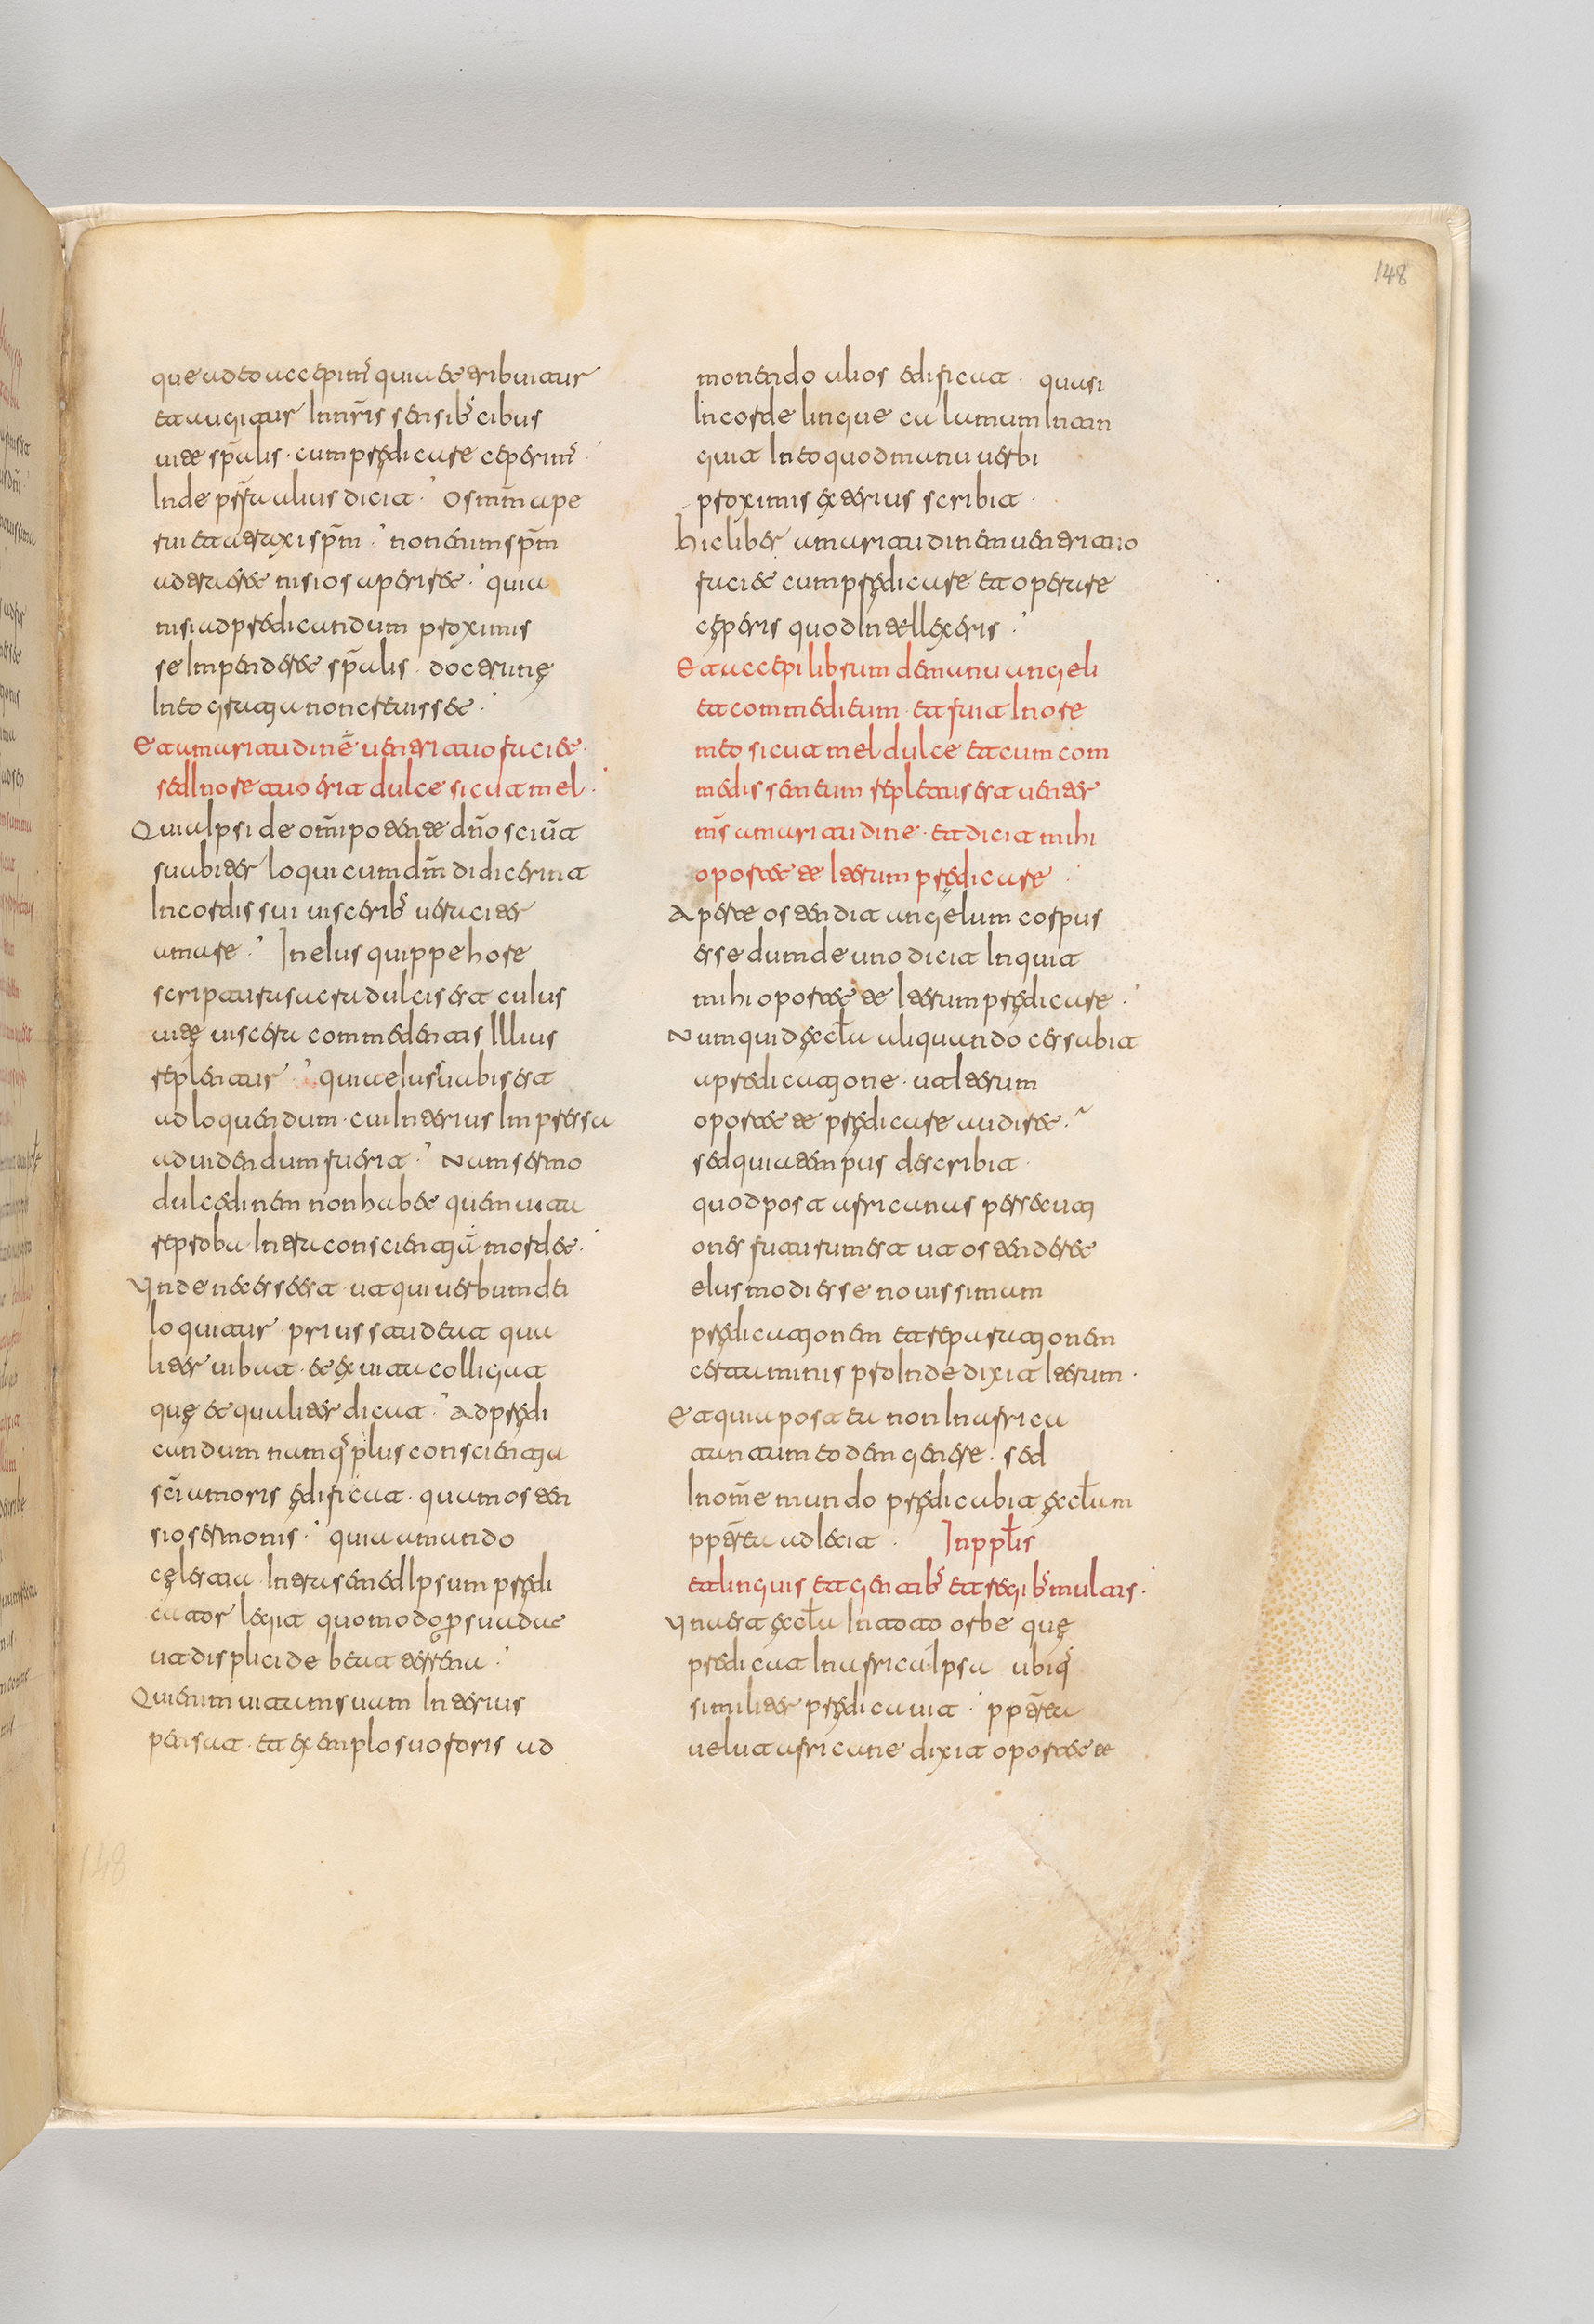 148
que ad eo accepim̄ quia et tribuitur
et augitur In nr̄is sensib; cibus
uite sp̄alis · cum predicare ceperim̄ ·
Inde psl̄ta alius dicit · os mm̄ ape
rui et atraxi sp̄m · non enim sp̄m
adtraeret nisi os aperiret · quia
nisi ad predicandum proximis
se Impenderet sp̄alis doctrinę
In eo gratia non creuisset ·
Et amaritudinē uentri tuo faciet ·
sed In ore tuo erit dulce sicut mel ·
Quia Ipsi de om̄ipotente dn̄o sciūt
suabiter loqui cum dm̄ didicerint
In cordis sui uiscerib; ueraciter
amare · In eIus quippe hore
scriptura sacra dulcis est cuIus
uitę uiscera commedentis Illius
replentur · quia eIus suabis est
ad loquendum · cui Interius Impressa
ad uidendum fuerit · Nam sermo
dulcedinem non habet quem uita
reproba Intra conscientiā mordet ·
Unde necesse est ut qui uerbum dei
loquitur prius studeat qua
liter uibat · et ex uita colligat
quę et qualiter dicat · Ad prędi
candum namq; plus conscientia
sc̄i amoris ędificat · quam osten
sio sermonis · quia amando
cęlestia Intra semed Ipsum prędi
cator legit quomodo psuadeat
ut displicide beat terrena ·
Qui enim uitam suam Interius
pensat · et exemplo suo foris ad
monendo alios edificat · quasi
In corde lingue calamum Intin
guit In eo quod manu uerbi
proximis exterius scribit ·
Hic liber amaritudinem uentri tuo
faciet cum prędicare et operare
cęperis quod Intellexeris ·
Et accepi librum de manu angeli
et commedi eum · et fuit In ore
meo sicut mel dulce et cum com
medissem eum repletus est uenter
ms̄ amaritudine · et dicit mihi
oportet te Iterum prędicare ·
Aperte ostendit angelum corpus
esse dum de uno dicit Inquit
mihi oportet te Iterum prędicare ·
Numquid ęccl̄a aliquando cessabit
a predicatione · ut Iterum
oportet te prędicare audiret ·
sed quia tempus describit ·
quod post africanus persecuti
ones futurum est ut ostenderet
eIusmodi esse nouissimum
prędicationem et reparationem
certaminis proInde dixit Iterum ·
Et quia post ea non In africa
tantum eodem genere · sed
In om̄e mundo prędicabit ęccl̄am
pp̄terea adIecit · In ppl̄is
et linguis et gentib; et regib; multis ·
Una est ęccl̄a In toto orbe quę
predicat In africa Ipsa ubiq;
similiter prędicauit · pp̄terea
uelut africane dixit oportet te
148